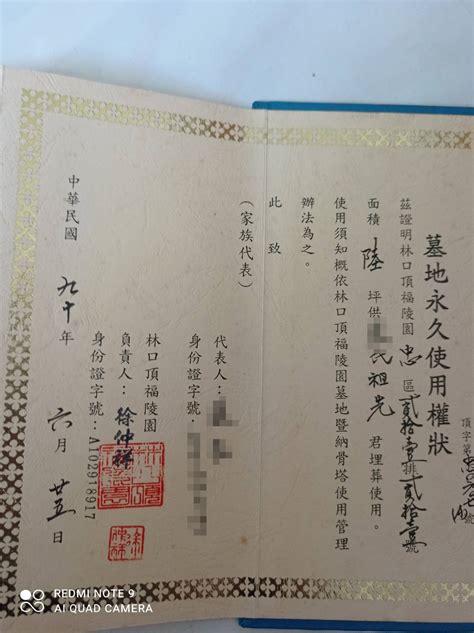 墓地永久使用權狀
頂字第
茲證明林口頂福陵園忠區貳拾壹排貳拾壹號
面積陸坪供 氏祖先君埋葬使用。
使用須知概依林口頂福陵園墓地暨納骨塔使用管理
辦法為之。
此致
(家族代表)
代表人：
身份證字號：
林口頂福陵園
負責人：徐仲祥
身份證字號：A102918917
中華民國九十年六月廿五日
REDMI NOTE 9
AI QUAD CAMERA